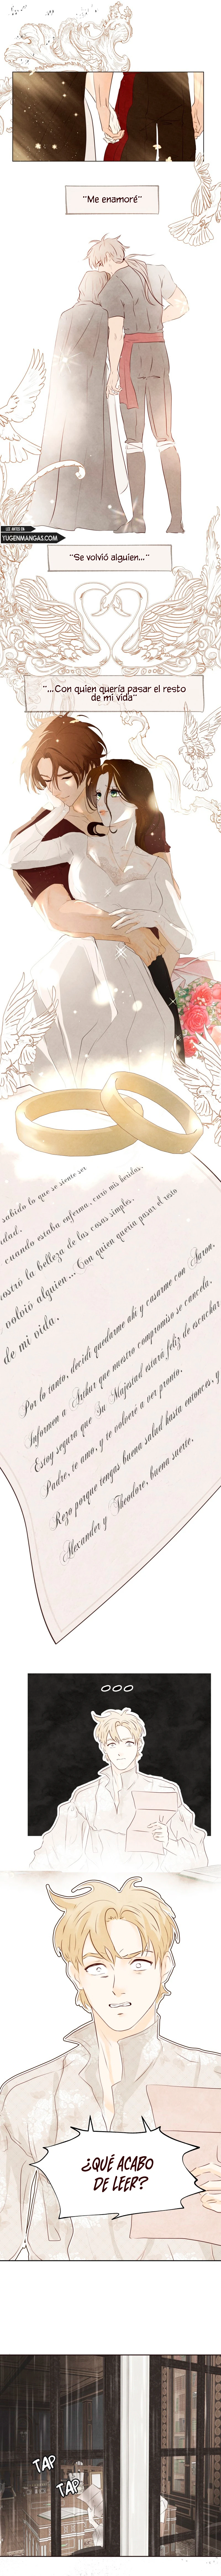 "Me enamoré"
LEE ANTES EN
YUGENMANGAS.COM
"Se volvió alguien..."
"...Con quien quería pasar el resto
de mi vida"
sabido lo que se siente ser
cuando estaba enferma, curó mis heridas,
mostró la belleza de las cosas simples.
volvió alguien... Con quien quería pasar el resto
de mi vida.
Por lo tanto, decidí quedarme ahí y casarme con Aaron.
Informen a Arthur que nuestro compromiso se cancela.
Estoy segura que Su Majestad estará feliz de escuchar
Padre, te amo, y te volveré a ver pronto.
Rezo porque tengas buena salud hasta entonces, y
Alexander y Theodore, buena suerte.
¿QUÉ ACABO
DE LEER?
TAP
TAP